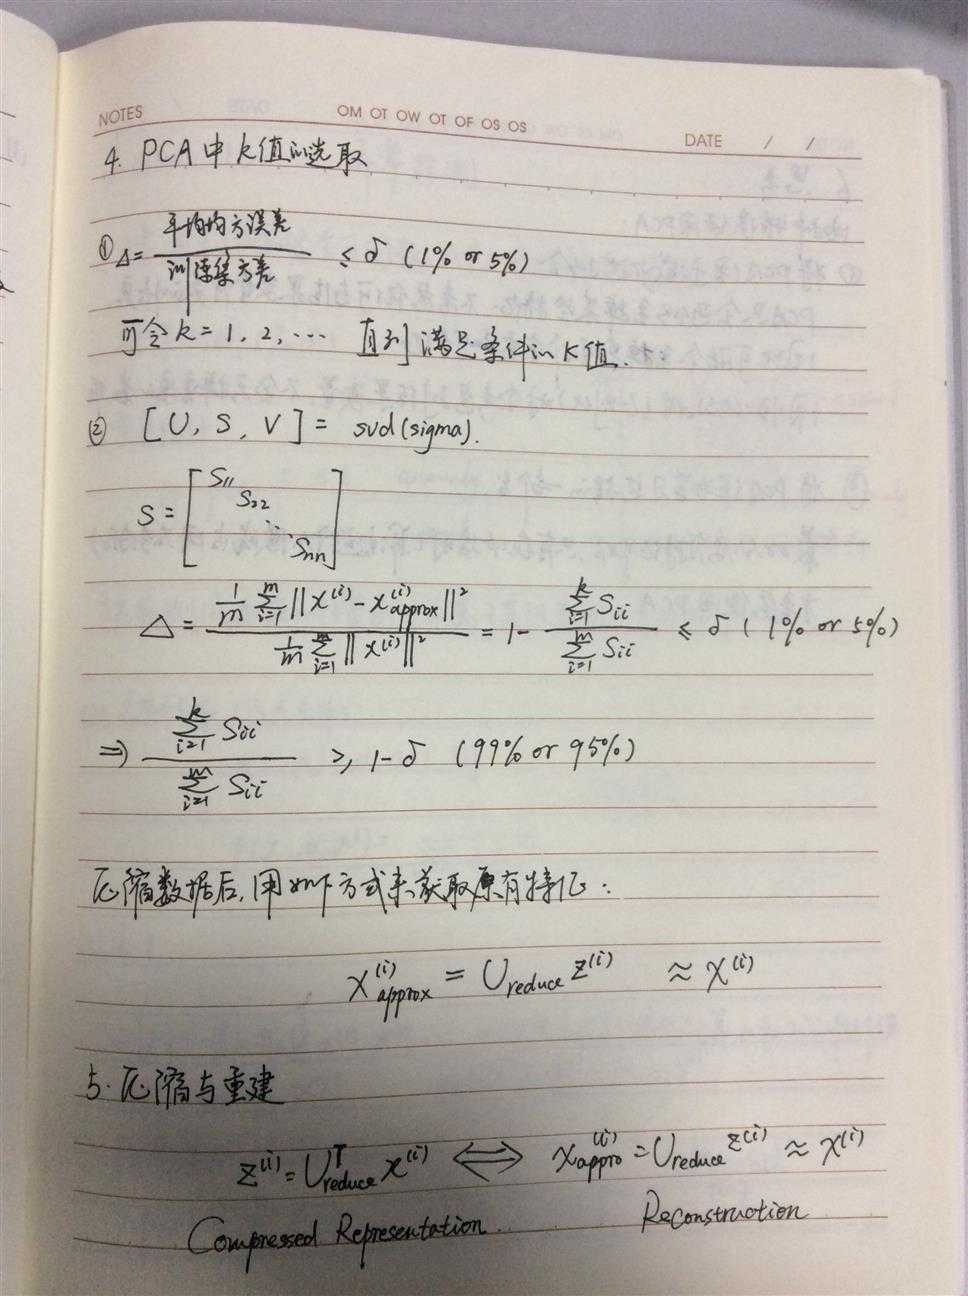 NOTES
OM OT OW OT OF OS OS
DATE / /
4. PCA中k值的选取
① Δ = 平均均方误差 / 训练集方差 ≤ δ (1% or 5%)
可令k = 1, 2, ··· 直到满足条件的K值.
② [U, S, V] = svd(sigma).
S = [S₁₁ S₂₂ ⋱ Sₙₙ]
Δ = (1/m Σᵢ₌₁ᵐ ||x⁽ⁱ⁾ - x⁽ⁱ⁾approx||²) / (1/m Σᵢ₌₁ᵐ ||x⁽ⁱ⁾||²) = 1 - (Σᵢ₌₁ᵏ Sᵢᵢ) / (Σᵢ₌₁ᵐ Sᵢᵢ) ≤ δ (1% or 5%)
⇒ (Σᵢ₌₁ᵏ Sᵢᵢ) / (Σᵢ₌₁ᵐ Sᵢᵢ) ≥ 1-δ (99% or 95%)
压缩数据后,用如下方式来获取原有特征:
x⁽ⁱ⁾approx = Ureduce z⁽ⁱ⁾ ≈ x⁽ⁱ⁾
5. 压缩与重建
z⁽ⁱ⁾ = Uᵀreduce x⁽ⁱ⁾ ⟺ x⁽ⁱ⁾appro = Ureduce z⁽ⁱ⁾ ≈ x⁽ⁱ⁾
Compressed Representation. Reconstruction